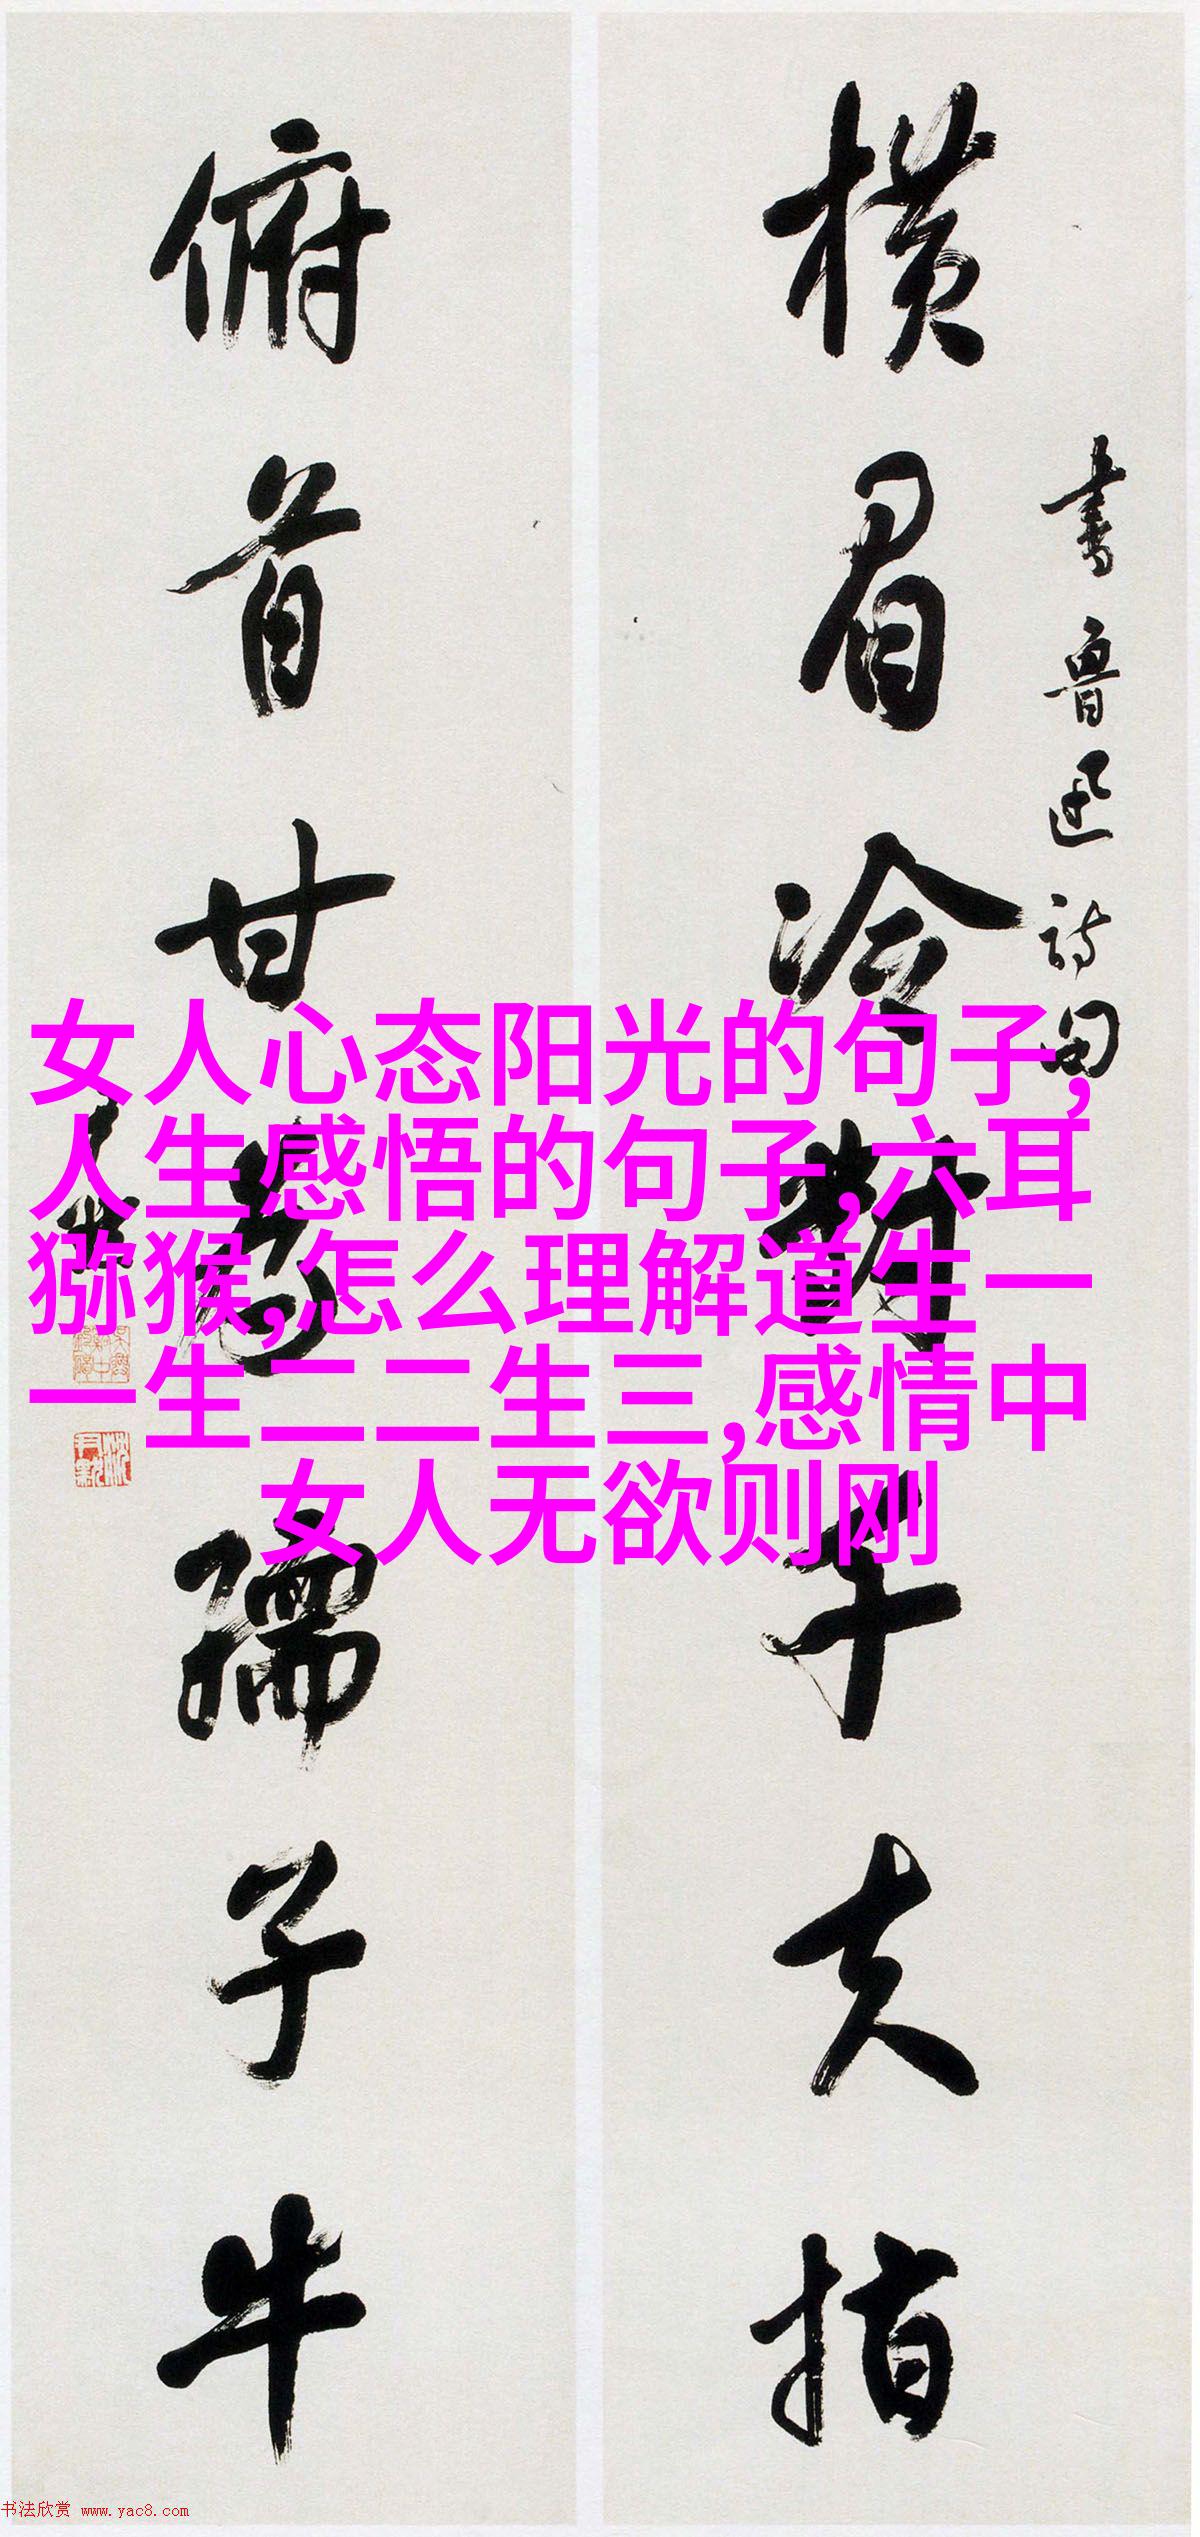 横眉冷对千夫指
书鲁迅诗句
俯首甘为孺子牛
尹默
女人心态阳光的句子,
人生感悟的句子,六耳
猕猴,怎么理解道生一
一生二二生三,感情中
女人无欲则刚
书法欣赏 www.yac8.com